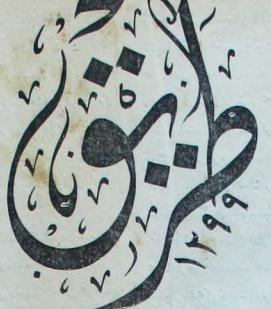 طريق
١٢٩٩